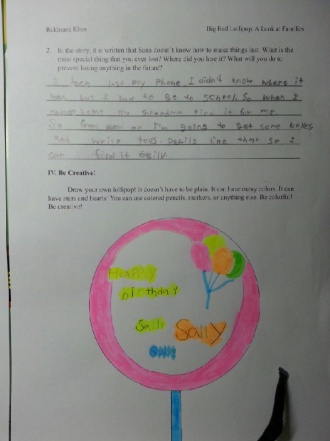 Rukhsana Khan Big Red Lollipop: A Look at Families
2. In the story, it is written that Sana doesn't know how to make things last. What is the
most special thing that you ever lost? Where did you lose it? What will you do to
prevent losing anything in the future?
I lost my phone I didn't know where it
was but I had to go to school. So when I
came home my Grandma find it for me.
So from now on I'm going to get some boxes
and write toys. like that so I
can find it easily.
IV. Be Creative!
Draw your own lollipop! It doesn't have to be plain. It can have many colors. It can
have stars and hearts! You can use colored pencils, markers, or anything else. Be colorful!
Be creative!
Happy
birthday
Sally